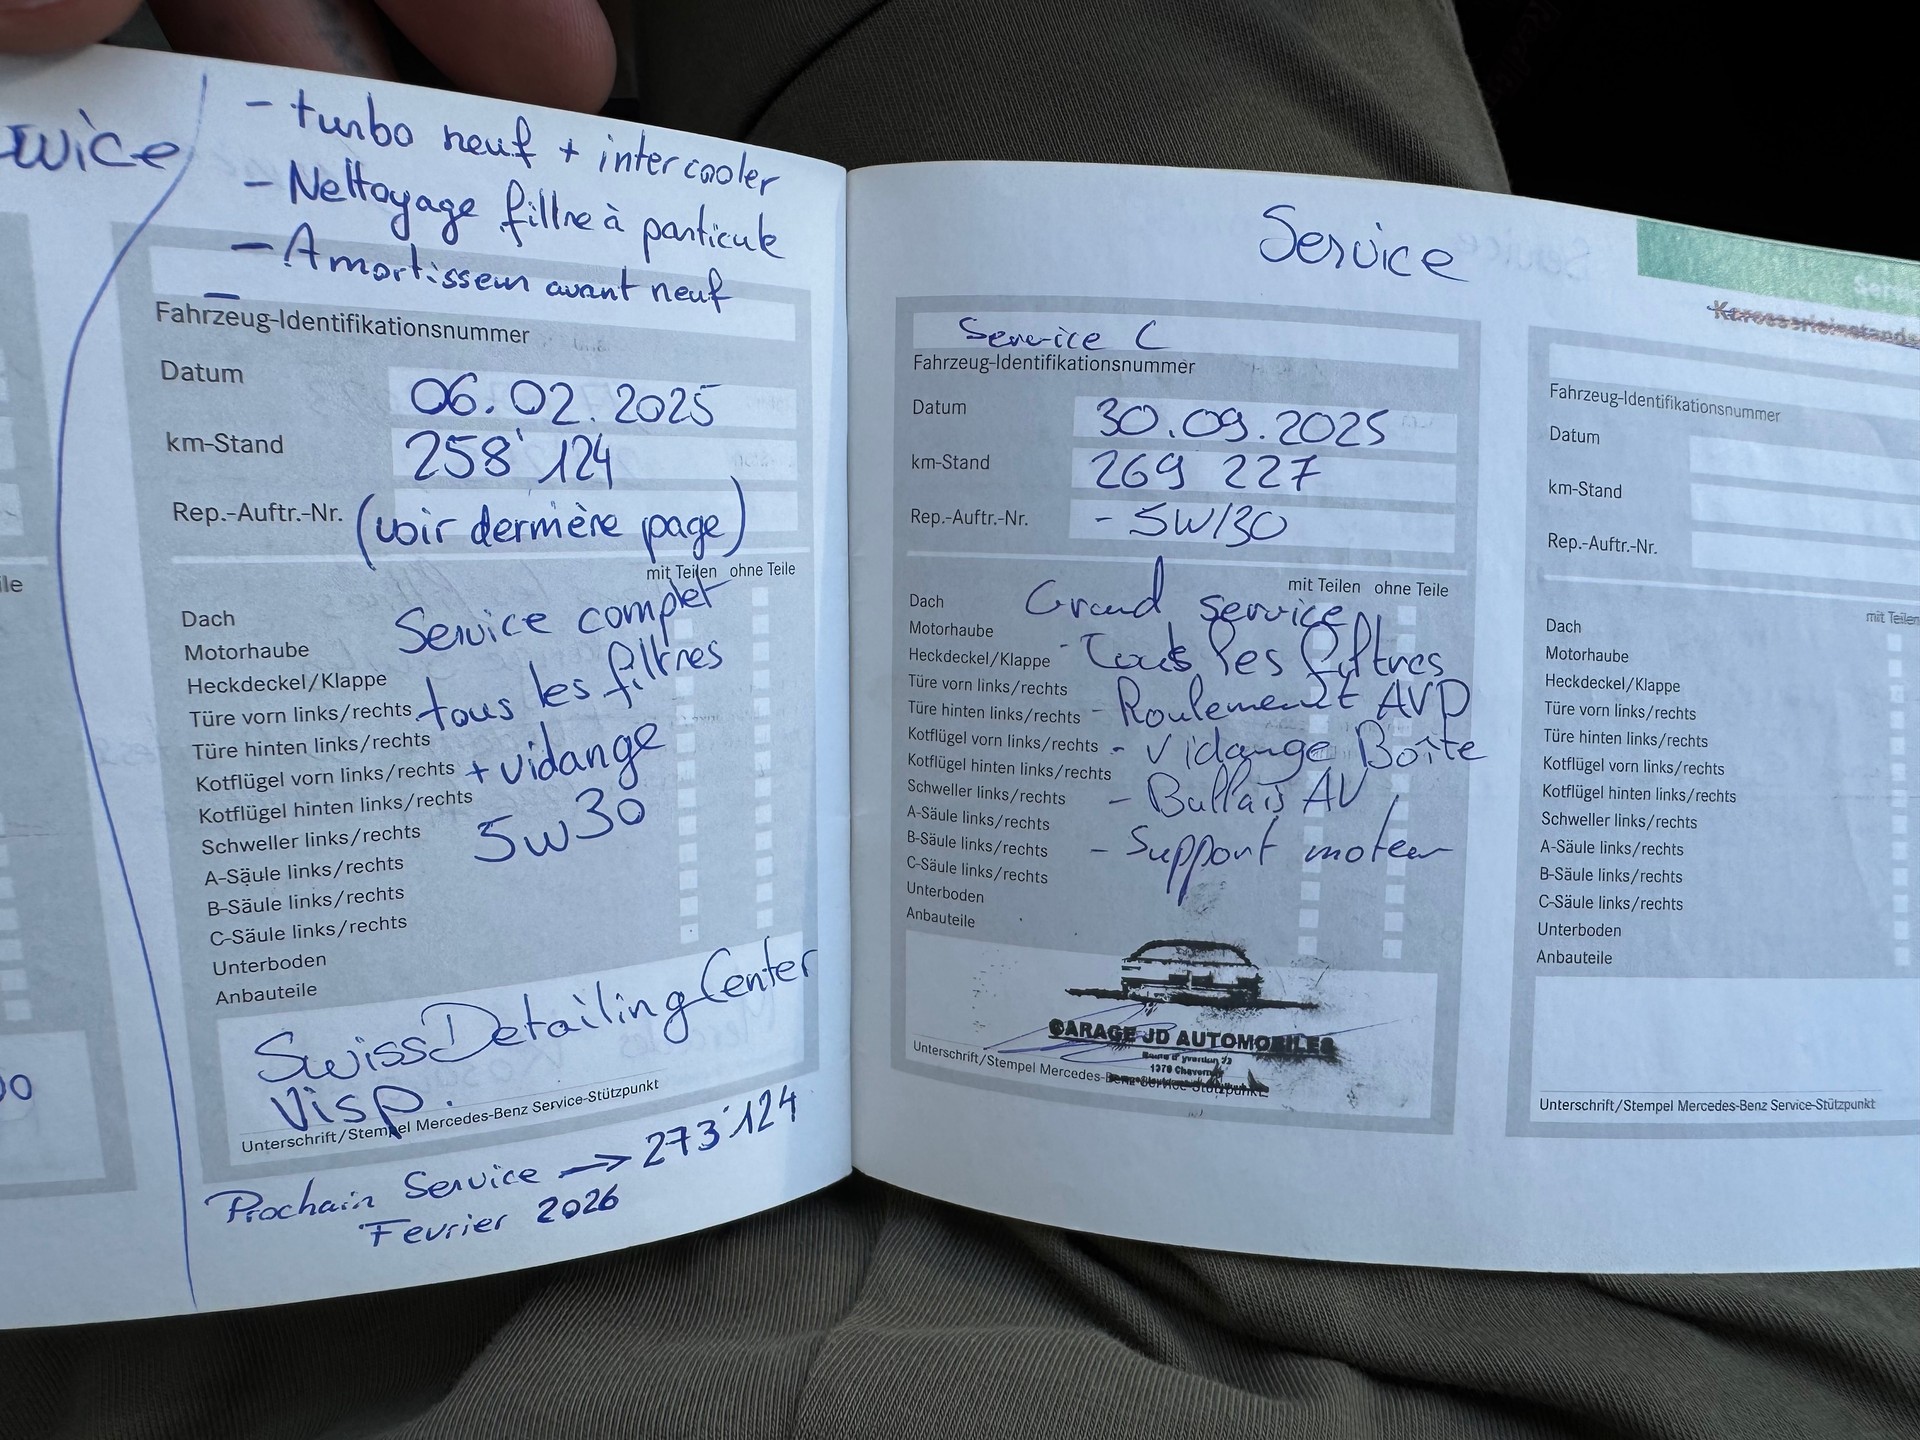 - turbo neuf + intercooler
- Nettoyage filtre à particule
- Amortisseur avant neuf
Fahrzeug-Identifikationsnummer
Datum 06.02.2025
km-Stand 258'124
Rep.-Auftr.-Nr. (voir dernière page)
mit Teilen ohne Teile
Dach
Motorhaube
Heckdeckel/Klappe
Türe vorn links/rechts
Türe hinten links/rechts
Kotflügel vorn links/rechts
Kotflügel hinten links/rechts
Schweller links/rechts
A-Säule links/rechts
B-Säule links/rechts
C-Säule links/rechts
Unterboden
Anbauteile
Service complet
tous les filtres
+ vidange
5w30
SwissDetailingCenter
Visp.
Unterschrift/Stempel Mercedes-Benz Service-Stützpunkt
Prochain Service → 273'124
Fevrier 2026
Service
Service C
Fahrzeug-Identifikationsnummer
Datum 30.09.2025
km-Stand 269 227
Rep.-Auftr.-Nr. - 5W/30
mit Teilen ohne Teile
Dach
Motorhaube
Heckdeckel/Klappe
Türe vorn links/rechts
Türe hinten links/rechts
Kotflügel vorn links/rechts
Kotflügel hinten links/rechts
Schweller links/rechts
A-Säule links/rechts
B-Säule links/rechts
C-Säule links/rechts
Unterboden
Anbauteile
Grand service
- Tous les filtres
- Roulement AVD
- Vidange Boîte
- Ballais AV
- Support moteur
GARAGE JD AUTOMOBILES
Unterschrift/Stempel Mercedes-Benz Service-Stützpunkt
Fahrzeug-Identifikationsnummer
Datum
km-Stand
Rep.-Auftr.-Nr.
mit Teilen
Dach
Motorhaube
Heckdeckel/Klappe
Türe vorn links/rechts
Türe hinten links/rechts
Kotflügel vorn links/rechts
Kotflügel hinten links/rechts
Schweller links/rechts
A-Säule links/rechts
B-Säule links/rechts
C-Säule links/rechts
Unterboden
Anbauteile
Unterschrift/Stempel Mercedes-Benz Service-Stützpunkt